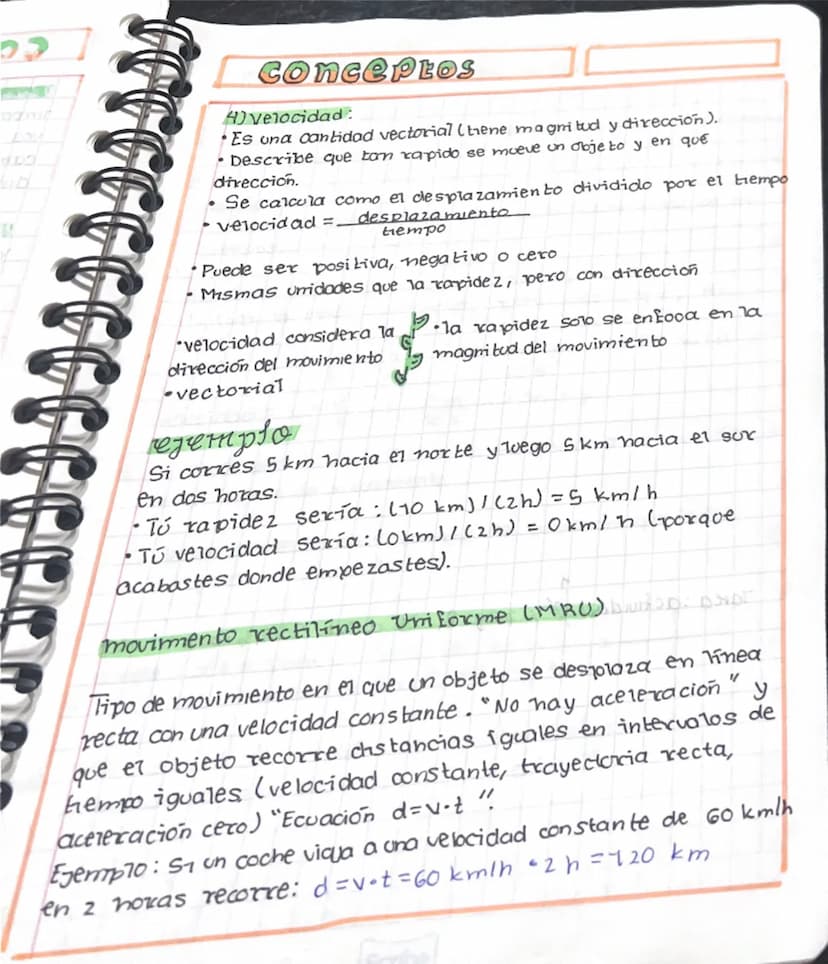 conceptos
4) velocidad:
• Es una cantidad vectorial (tiene magnitud y dirección).
• Describe que tan rapido se mueve un objeto y en que
dirección.
• Se calcula como el desplazamiento dividido por el tiempo
• velocidad = desplazamiento
tiempo
• Puede ser positiva, negativo o cero
• Mismas unidades que la rapidez, pero con dirección
• velocidad considera la
dirección del movimiento
• vectorial
• la rapidez solo se enfoca en la
magnitud del movimiento
ejemplo
Si corres 5 km hacia el norte y luego 5 km hacia el sur
en dos horas.
• Tú rapidez sería: (10 km) / (2h) = 5 km/h
• Tú velocidad sería: (0 km) / (2h) = 0 km/h (porque
acabastes donde empezastes).
movimento rectilíneo Uniforme (MRU)
Tipo de movimiento en el que un objeto se desplaza en línea
recta con una velocidad constante. "No hay aceleración" y
que el objeto recorre distancias iguales en intervalos de
tiempo iguales (velocidad constante, trayectoria recta,
aceleración cero) "Ecuación d=v·t".
Ejemplo: Si un coche viaja a una velocidad constante de 60 km/h
en 2 horas recorre: d=v·t=60 km/h · 2 h = 120 km